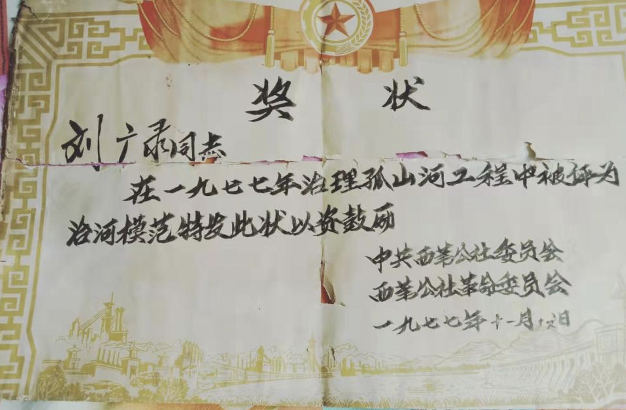 奖状
刘广录同志
在一九七七年治理孤山河工程中被评为
治河模范特发此状以资鼓励
中共西苇公社委员会
西苇公社革命委员会
一九七七年十一月 日